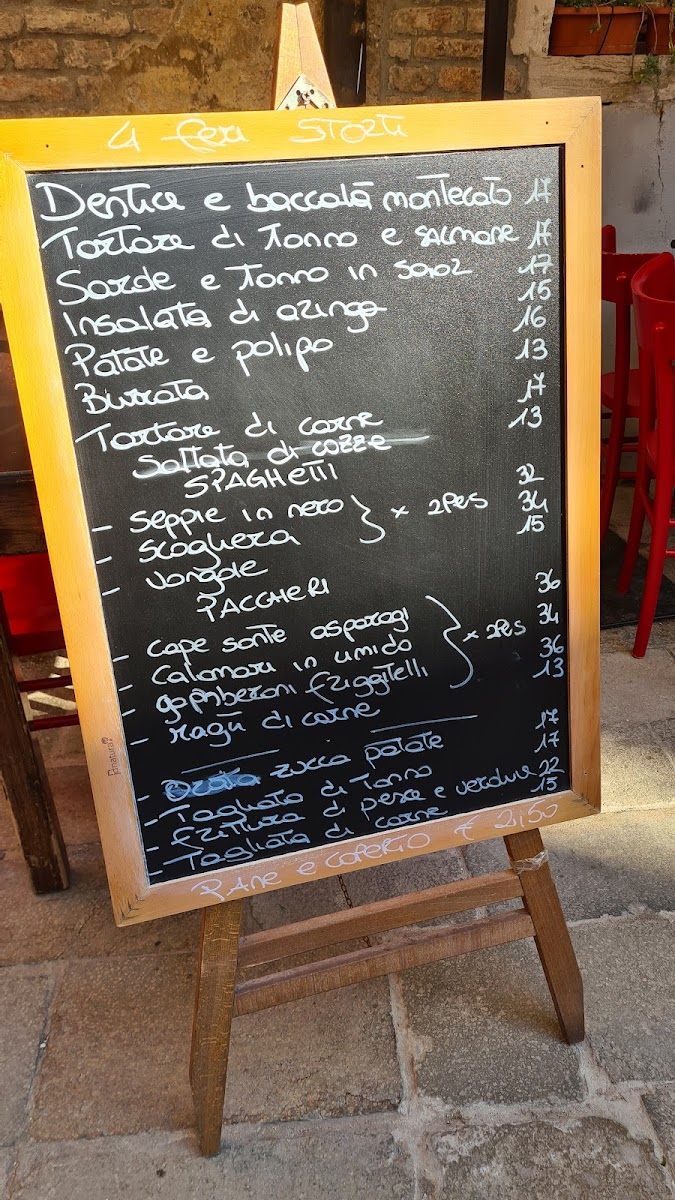 4 feri STORTI
Dentice e baccalà mantecato 17
Tartare di tonno e salmone 17
Sarde e tonno in saor 17
Insalata di aringa 15
Patate e polipo 16
Burrata 13
Tartare di carne 17
Saltata di cozze 13
SPAGHETTI
- seppie in nero 32
- scogliera } x 2PES 34
- vongole 15
PACCHERI
- cape sante asparagi 36
- calamari in umido } x 2PES 34
- gamberoni friggitelli 36
- ragù di carne 13
- zucca patate 17
- Tagliata di tonno 17
- frittura di pesce e verdure 22
- Tagliata di carne 15
PANE e COPERTO € 2,50